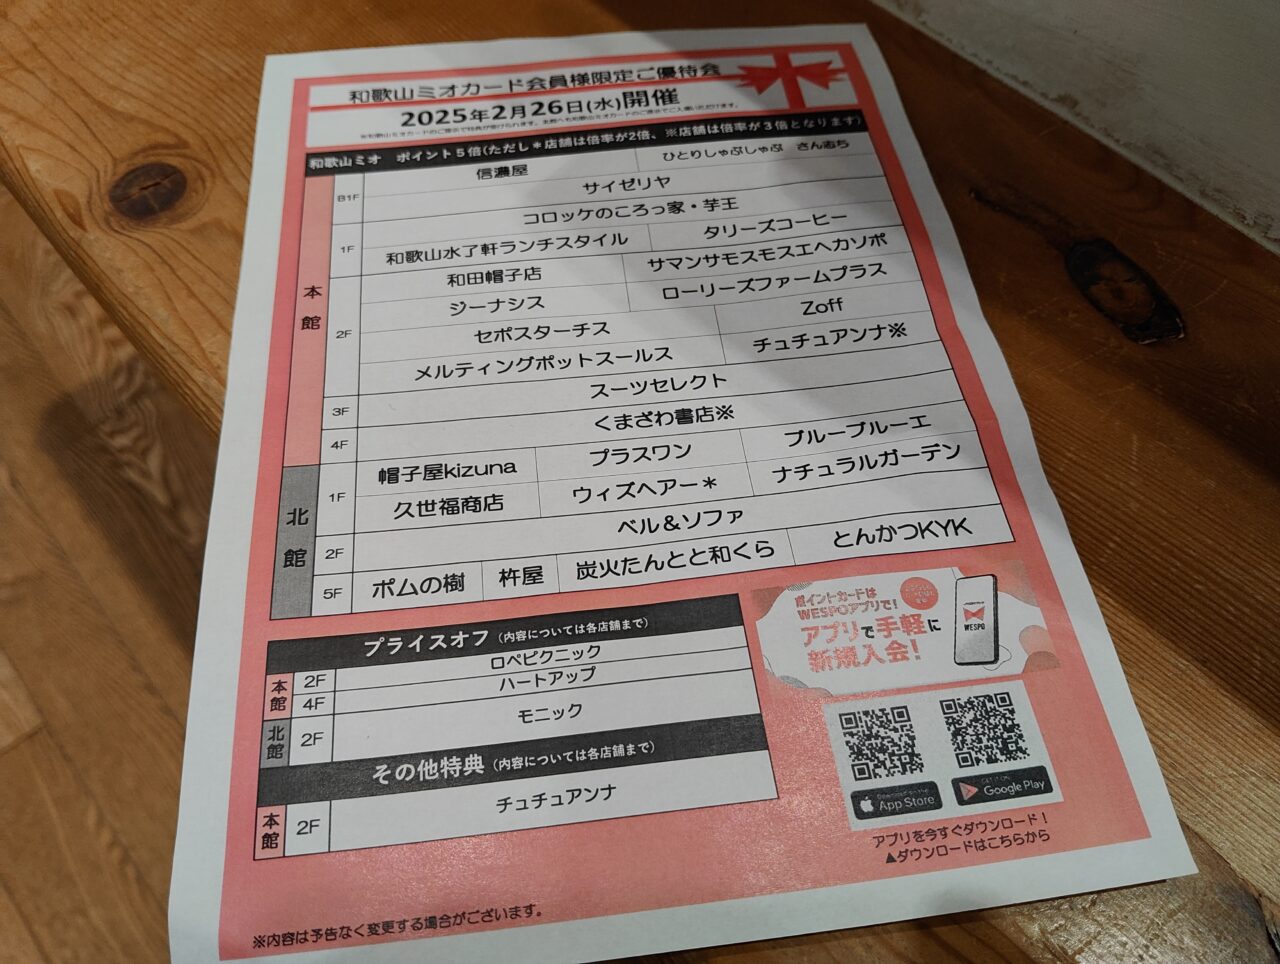 和歌山ミオカード会員様限定ご優待会
2025年2月26日(水)開催
※和歌山ミオカードのご提示で特典が受けられます。
和歌山ミオ ポイント5倍(ただし＊店舗は倍率が2倍、※店舗は倍率が3倍となります)
本館
B1F
信濃屋 ひとりしゃぶしゃぶ さん志ち
サイゼリヤ
1F
コロッケのころっ家・芋王
和歌山水了軒ランチスタイル タリーズコーヒー
2F
和田帽子店 サマンサモスモスエヘカソポ
ジーナシス ローリーズファームプラス
セポスターチス Zoff
メルティングポットスールス チュチュアンナ※
3F スーツセレクト
4F くまざわ書店※
北館
1F
帽子屋kizuna プラスワン ブルーブルーエ
久世福商店 ウィズヘアー＊ ナチュラルガーデン
2F ベル＆ソファ
5F ポムの樹 杵屋 炭火たんとと和くら とんかつKYK
プライスオフ（内容については各店舗まで）
本館 2F ロペピクニック
4F ハートアップ
北館 2F モニック
その他特典（内容については各店舗まで）
本館 2F チュチュアンナ
ポイントカードは
WESPOアプリで！
アプリで手軽に
新規入会！
WESPO
Download on the App Store
GET IT ON Google Play
アプリを今すぐダウンロード！
▲ダウンロードはこちらから
※内容は予告なく変更する場合がございます。